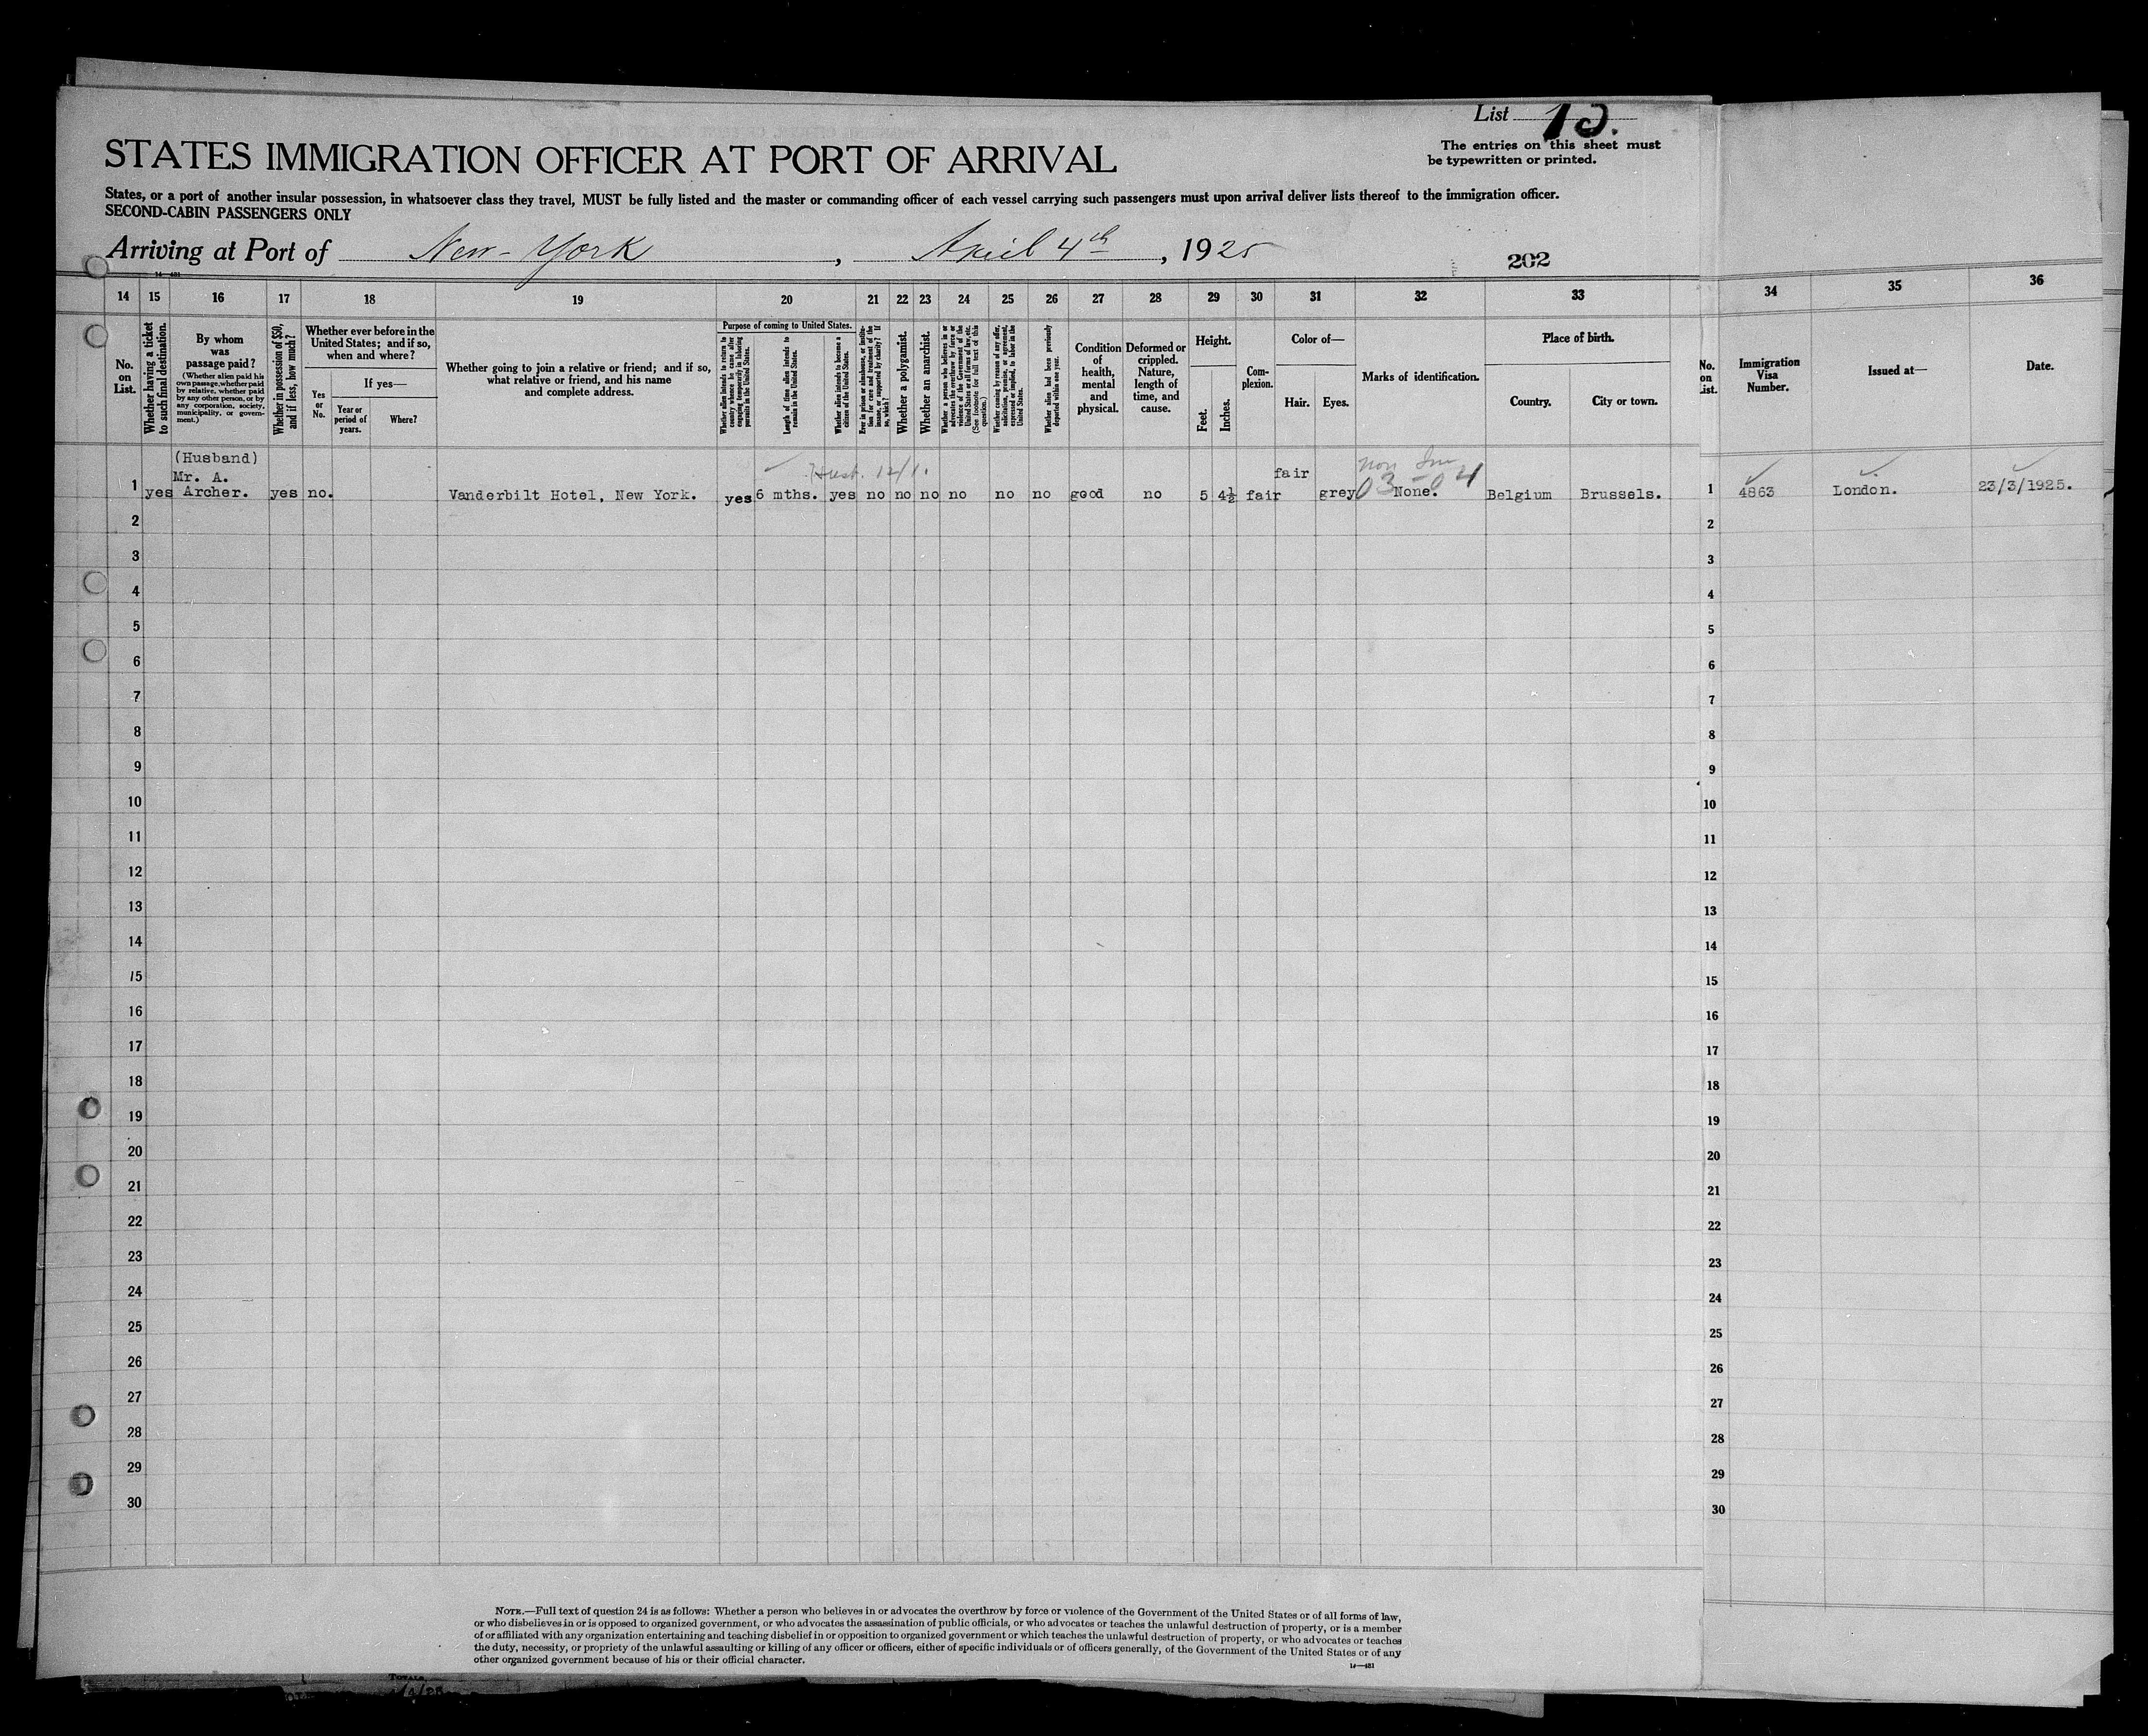 List 13.
The entries on this sheet must
be typewritten or printed.
STATES IMMIGRATION OFFICER AT PORT OF ARRIVAL
States, or a port of another insular possession, in whatsoever class they travel, MUST be fully listed and the master or commanding officer of each vessel carrying such passengers must upon arrival deliver lists thereof to the immigration officer.
SECOND-CABIN PASSENGERS ONLY
Arriving at Port of New-York, April 4th, 1925
202
14—481
14 15 16 17 18 19 20 21 22 23 24 25 26 27 28 29 30 31 32 33 34 35 36
No.
on
List.
Whether having a ticket
to such final destination.
By whom
was
passage paid?
(Whether alien paid his
own passage, whether paid
by relative, whether paid
by any other person, or by
any corporation, society,
municipality, or govern-
ment.)
Whether in possession of $50,
and if less, how much?
Whether ever before in the
United States; and if so,
when and where?
Yes
or
No.
If yes—
Year or
period of
years.
Where?
Whether going to join a relative or friend; and if so,
what relative or friend, and his name
and complete address.
Purpose of coming to United States.
Whether alien intends to return to
country whence he came after
engaging temporarily in laboring
pursuits in the United States.
Length of time alien intends to
remain in the United States.
Whether alien intends to become a
citizen of the United States.
Ever in prison or almshouse, or institu-
tion for care and treatment of the
insane, or supported by charity? If
so, which?
Whether a polygamist.
Whether an anarchist.
Whether a person who believes in or
advocates the overthrow by force or
violence of the Government of the
United States or all forms of law, etc.
(See footnote for full text of this
question.)
Whether coming by reason of any offer,
solicitation, promise, or agreement,
expressed or implied, to labor in the
United States.
Whether alien had been previously
deported within one year.
Condition
of
health,
mental
and
physical.
Deformed or
crippled.
Nature,
length of
time, and
cause.
Height.
Feet.
Inches.
Com-
plexion.
Color of—
Hair.
Eyes.
Marks of identification.
Place of birth.
Country.
City or town.
No.
on
List.
Immigration
Visa
Number.
Issued at—
Date.
(Husband)
Mr. A.
fair
non Imm
1 yes Archer. yes no. Vanderbilt Hotel, New York. yes 6 mths. yes no no no no no no good no 5 4½ fair grey None. Belgium Brussels. 1 4863 London. 23/3/1925.
2 2
3 3
4 4
5 5
6 6
7 7
8 8
9 9
10 10
11 11
12 12
13 13
14 14
15 15
16 16
17 17
18 18
19 19
20 20
21 21
22 22
23 23
24 24
25 25
26 26
27 27
28 28
29 29
30 30
NOTE.—Full text of question 24 is as follows: Whether a person who believes in or advocates the overthrow by force or violence of the Government of the United States or of all forms of law,
or who disbelieves in or is opposed to organized government, or who advocates the assassination of public officials, or who advocates or teaches the unlawful destruction of property, or is a member
of or affiliated with any organization entertaining and teaching disbelief in or opposition to organized government or which teaches the unlawful destruction of property, or who advocates or teaches
the duty, necessity, or propriety of the unlawful assaulting or killing of any officer or officers, either of specific individuals or of officers generally, of the Government of the United States or of any
other organized government because of his or their official character.
14—481